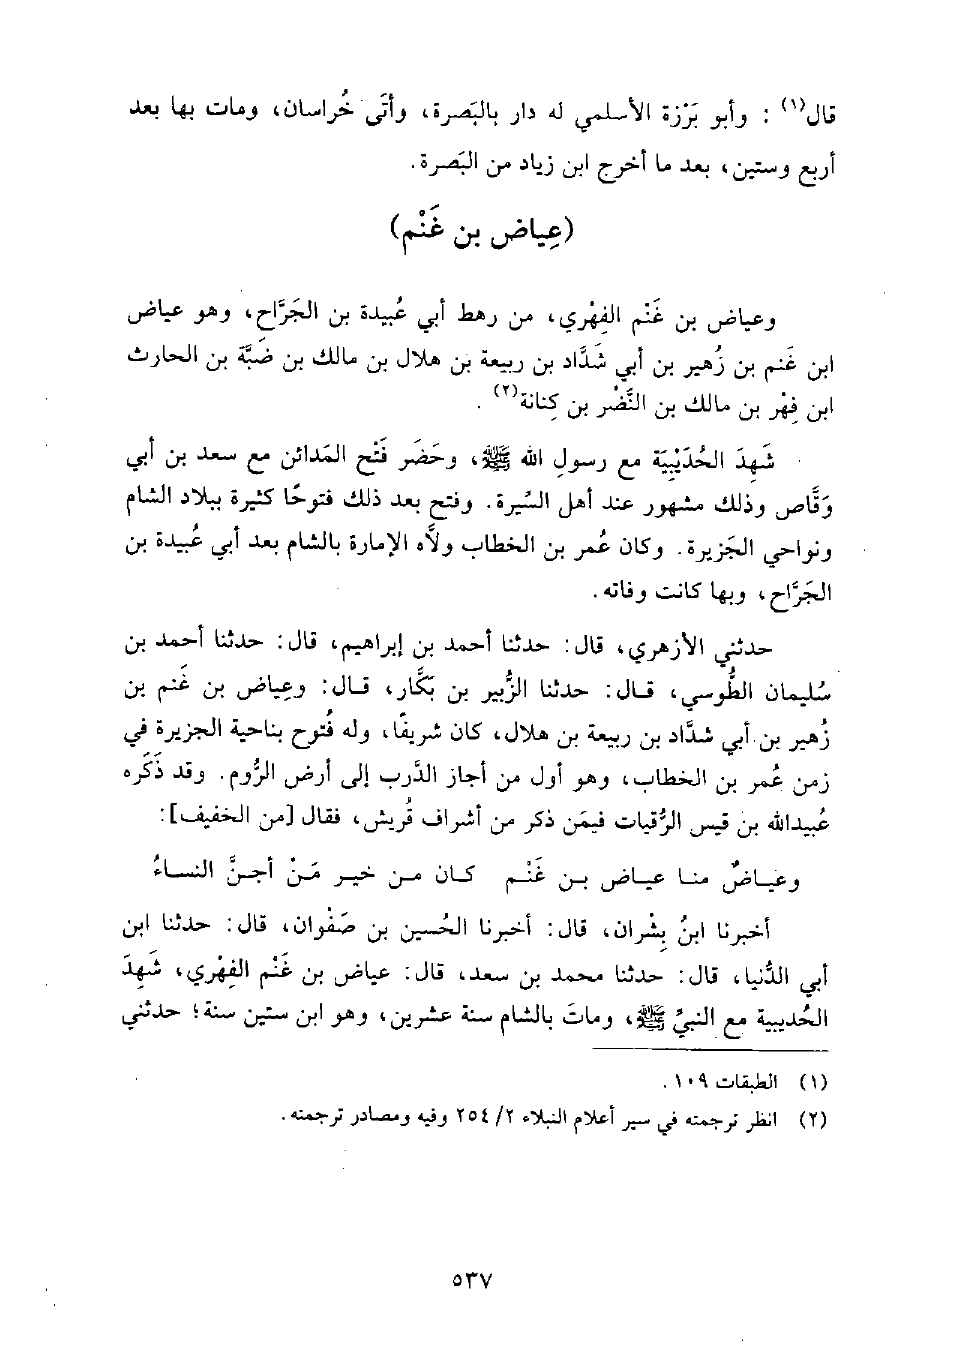 قال(١) : وأبو بَرْزة الأسلمي له دار بالبَصرة، وأتَى خُراسان، ومات بها بعد
أربع وستين، بعد ما أخرج ابن زياد من البَصرة.
(عِياض بن غَنْم)
وعياض بن غَنْم الفِهْري، من رهط أبي عُبيدة بن الجَرَّاح، وهو عياض
ابن غَنم بن زُهير بن أبي شَدَّاد بن ربيعة بن هلال بن مالك بن ضَبَّة بن الحارث
ابن فِهْر بن مالك بن النَّضْر بن كِنانة(٢) .
شَهِدَ الحُدَيْبِيَة مع رسولِ الله ﷺ، وحَضَر فَتْح المَدائن مع سعد بن أبي
وَقَّاص وذلك مشهور عند أهل السِّيرة. وفتح بعد ذلك فتوحًا كثيرة ببلاد الشام
ونواحي الجَزيرة. وكان عُمر بن الخطاب ولاَّه الإمارة بالشام بعد أبي عُبيدة بن
الجَرَّاح، وبها كانت وفاته.
حدثني الأزهري، قال: حدثنا أحمد بن إبراهيم، قال: حدثنا أحمد بن
سُليمان الطُّوسي، قال: حدثنا الزُّبير بن بَكَّار، قال: وعِياض بن غَنم بن
زُهير بن أبي شدَّاد بن ربيعة بن هلال، كان شريفًا، وله فُتوح بناحية الجزيرة في
زمن عُمر بن الخطاب، وهو أول من أجاز الدَّرب إلى أرض الرُّوم. وقد ذَكَره
عُبيدالله بن قيس الرُّقيات فيمَن ذكر من أشراف قُريش، فقال [من الخفيف]:
وعياضٌ منا عياض بن غَنْم كان من خير مَنْ أجنَّ النساءُ
أخبرنا ابنُ بِشْران، قال: أخبرنا الحُسين بن صَفْوان، قال: حدثنا ابن
أبي الدُّنيا، قال: حدثنا محمد بن سعد، قال: عياض بن غَنْم الفِهْري، شَهِدَ
الحُديبية مع النبيِّ ﷺ، وماتَ بالشام سنة عشرين، وهو ابن ستين سنة؛ حدثني
(١) الطبقات ١٠٩ .
(٢) انظر ترجمته في سير أعلام النبلاء ٢/ ٢٥٤ وفيه ومصادر ترجمته.
٥٣٧